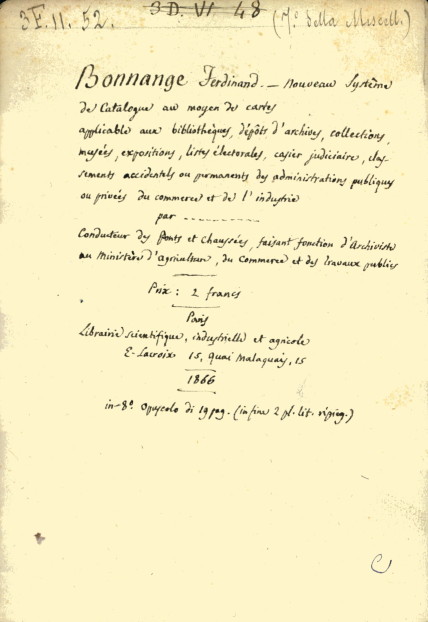 3F.II.52. 3D. VI 48 (7º della Miscell.)
Bonnange Ferdinand. — Nouveau Système
de Catalogue au moyen de cartes
applicable aux bibliothèques, dépôts d'archives, collections,
musées, expositions, listes électorales, casier judiciaire, clas-
sements accidentels ou permanents des administrations publiques
ou privées du commerce et de l'industrie
par ----------
Conducteur des Ponts et Chaussées, faisant fonction d'Archiviste
au Ministère d'Agriculture, du Commerce et des travaux publics
Prix : 2 francs
Paris
Librairie scientifique, industrielle et agricole
E. Lacroix 15, quai Malaquais, 15
1866
in-8º Opuscolo di 19 pag. (in fine 2 pl. lit. ripieg.)